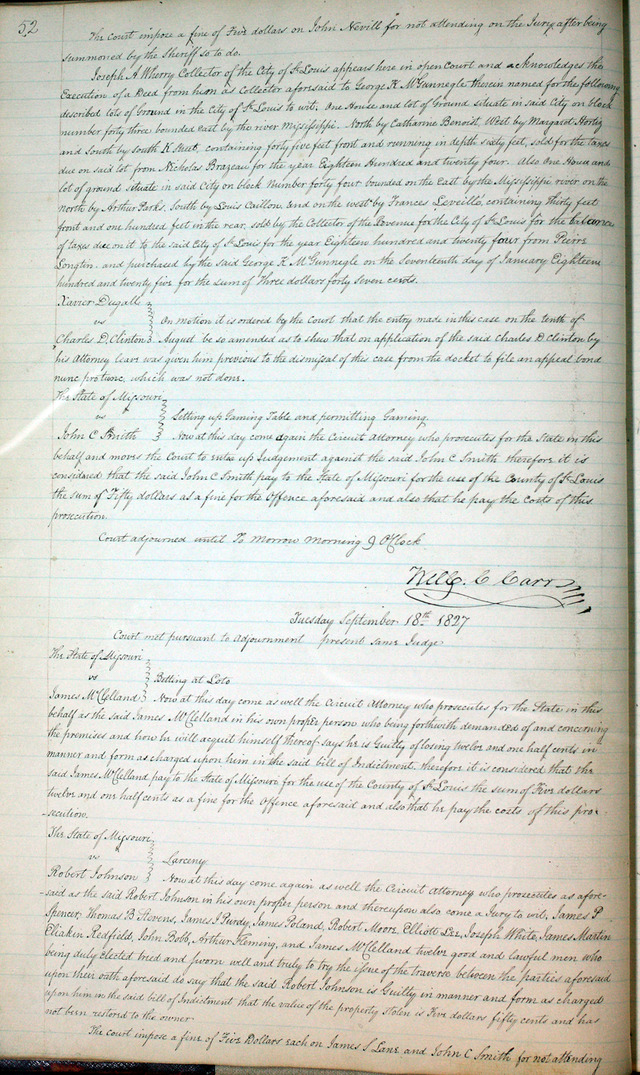 52
The Court impose a fine of Five dollars on John Nevill for not attending on the Jury after being
summoned by the Sheriff so to do.
Joseph A Wherry Collector of the City of St Louis appears here in open Court and acknowledges the
Execution of a Deed from him as Collector aforsaid to George K McGunnegle therein named for the following
described lots of Ground in the City of St Louis to wit, One House and lot of Ground situate in said City on block
number forty three bounded East by the river Mississippi. North by Catharine Benoist, West by Margaret Hortiz
and South by South K. Street, containing forty five feet front and running in depth sixty feet, sold for the taxes
due on said lot from Nicholas Brazeau for the year Eighteen Hundred and twenty four. Also One House and
lot of ground situate in said City on block number forty four bounded on the East by the Mississippi river on the
north by Arthur Parks, South by Louis Caillou, and on the west by Frances Leveille, containing thirty feet
front and one hundred feet in the rear, sold by the Collector of the Revenue for the City of St Louis for the balance
of taxes due on it to the said City of St Louis for the year Eighteen hundred and twenty four from Pierre
Longtin. and purchased by the said George K McGunnegle on the Seventeenth day of January Eighteen
hundred and twenty five for the sum of three dollars forty seven cents.
Xavier Dugall
vs On motion it is ordered by the Court that the entry made in this case on the tenth of
Charles D. Clinton August be so amended as to shew that on application of the said Charles D. Clinton by
his Attorney leave was given him previous to the dismissal of this case from the docket to file an appeal bond
nunc pro tunc, which was not done.
The State of Missouri
vs Setting up Gaming Table and permitting Gaming.
John C Smith Now at this day come again the Circuit Attorney who prosecutes for the State in this
behalf and moves the Court to enter up Judgement against the said John C Smith therefore it is
considered that the said John C Smith pay to the State of Missouri for the use of the County of St Louis
the sum of Fifty dollars as a fine for the Offence aforesaid and also that he pay the costs of this
prosecution.
Court adjourned until To Morrow Morning 9 O'Clock.
Will. C Carr
Tuesday September 18th 1827
Court met pursuant to adjournment present same Judge
The State of Missouri
vs Betting at Loto
James McClelland Now at this day come as well the Circuit Attorney who prosecutes for the State in this
behalf as the said James McClelland in his own proper person who being forthwith demanded of and concerning
the premises and how he will acquit himself thereof says he is Guilty of losing twelve and one half cents in
manner and form as charged upon him in the said bill of Indictment, therefore it is considered that the
said James McClelland pay to the State of Missouri for the use of the County of St Louis the sum of Five dollars
twelve and one half cents as a fine for the Offence aforesaid and also that he pay the costs of this pro
secution.
The State of Missouri
vs Larceny
Robert Johnson Now at this day come again as well the Circuit Attorney who prosecutes as afore-
-said as the said Robert Johnson in his own proper person and thereupon also come a Jury to wit, James P.
Spencer, Thomas B Stevens, James J Purdy, James Poland, Robert Moore, Elliott Lee, Joseph White, James Martin
Eliakin Redfield, John Bobb, Arthur Fleming, and James McClelland twelve good and lawful men who
being duly elected tried and sworn well and truly to try the issue of the traverse between the parties aforesaid
upon their oath aforesaid do say that the said Robert Johnson is Guilty in manner and form as charged
upon him in the said bill of Indictment that the value of the property stolen is Five dollars fifty cents and has
not been restored to the owner.
The Court impose a fine of Five Dollars each on James S Lane and John C Smith for not attending